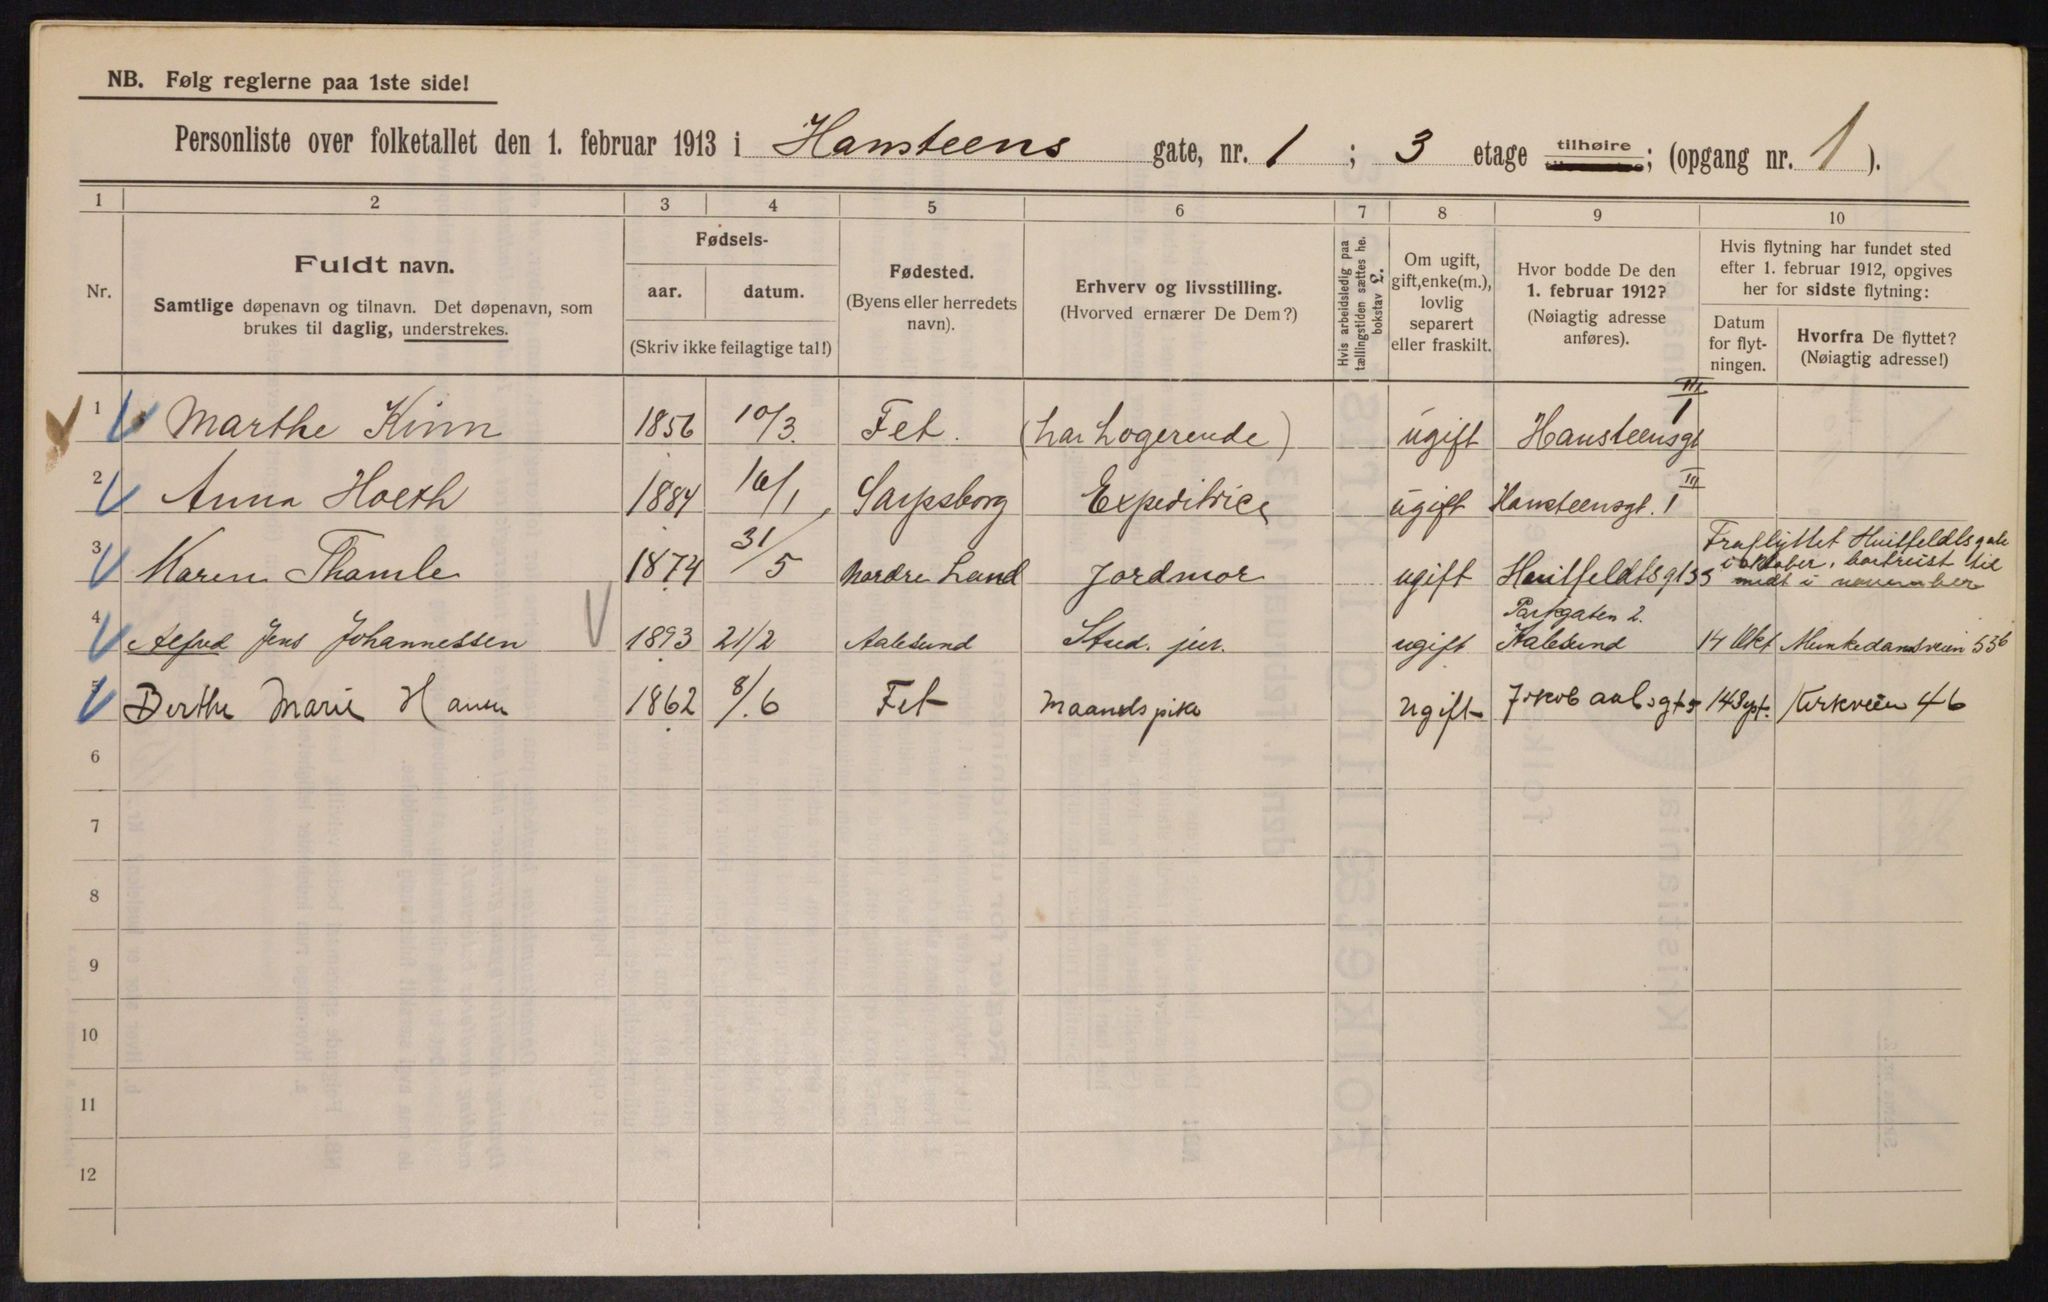 NB. Følg reglerne paa 1ste side!
Personliste over folketallet den 1. februar 1913 i Hansteens gate, nr. 1 ; 3 etage tilhøire; (opgang nr. 1 ).
1 2 3 4 5 6 7 8 9 10
Nr.
Fuldt navn.
Samtlige døpenavn og tilnavn. Det døpenavn, som
brukes til daglig, understrekes.
Fødsels-
aar. datum.
(Skriv ikke feilagtige tal!)
Fødested.
(Byens eller herredets
navn).
Erhverv og livsstilling.
(Hvorved ernærer De Dem?)
Hvis arbeidsledig paa
tællingstiden sættes he.
bokstav L.
Om ugift,
gift, enke(m.),
lovlig
separert
eller fraskilt.
Hvor bodde De den
1. februar 1912?
(Nøiagtig adresse
anføres).
Hvis flytning har fundet sted
efter 1. februar 1912, opgives
her for sidste flytning:
Datum
for flyt-
ningen.
Hvorfra De flyttet?
(Nøiagtig adresse!)
1 Marthe Kinn 1856 10/3. Fet. (har Logerende) ugift Hansteensgt 1 III
2 Anna Hoeth 1884 16/1 Sarpsborg Expeditrice ugift Hansteensgt. 1 III
3 Karen Thomle 1874 31/5 Nordre Land Jordmor ugift Huitfeldtsgt 33 Fraflyttet Huitfeldtsgate
i oktober, bortreist til
midt i november
4 Alfred Jens Johannessen 1893 21/2 Aalesund Stud. jur. ugift Parkgaten 2.
Aalesund 14 Okt Munkedamsveien 53b
5 Berthe Marie Hansen 1862 8/6 Fet Maanedspike ugift Jakob aalsgt 5 14 Sept. Kirkveien 46
6
7
8
9
10
11
12